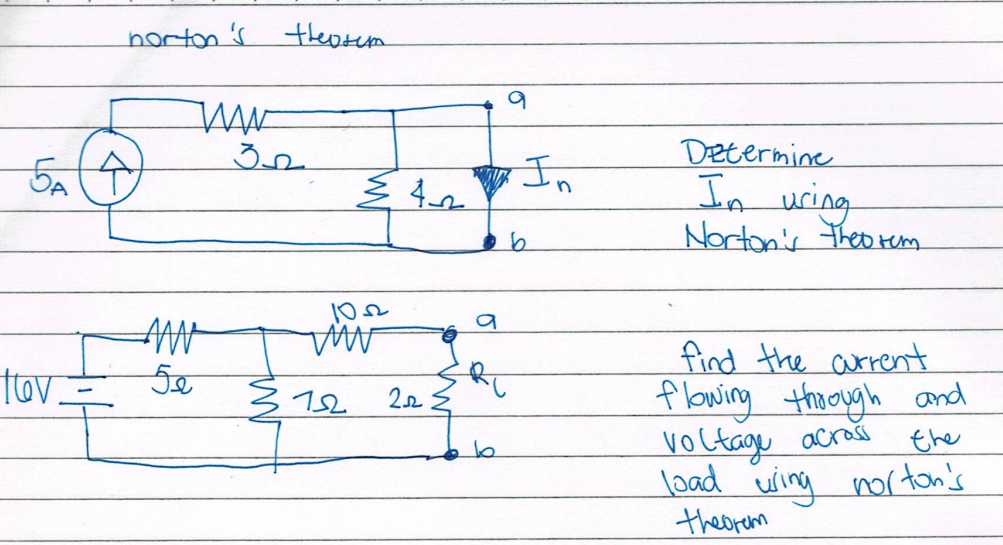 norton's theorem
a
3Ω
5A
4Ω
In
b
Determine
In using
Norton's theorem
10Ω
a
16V
5Ω
RL
2Ω
b
find the current
flowing through and
voltage across the
load using norton's
theorem